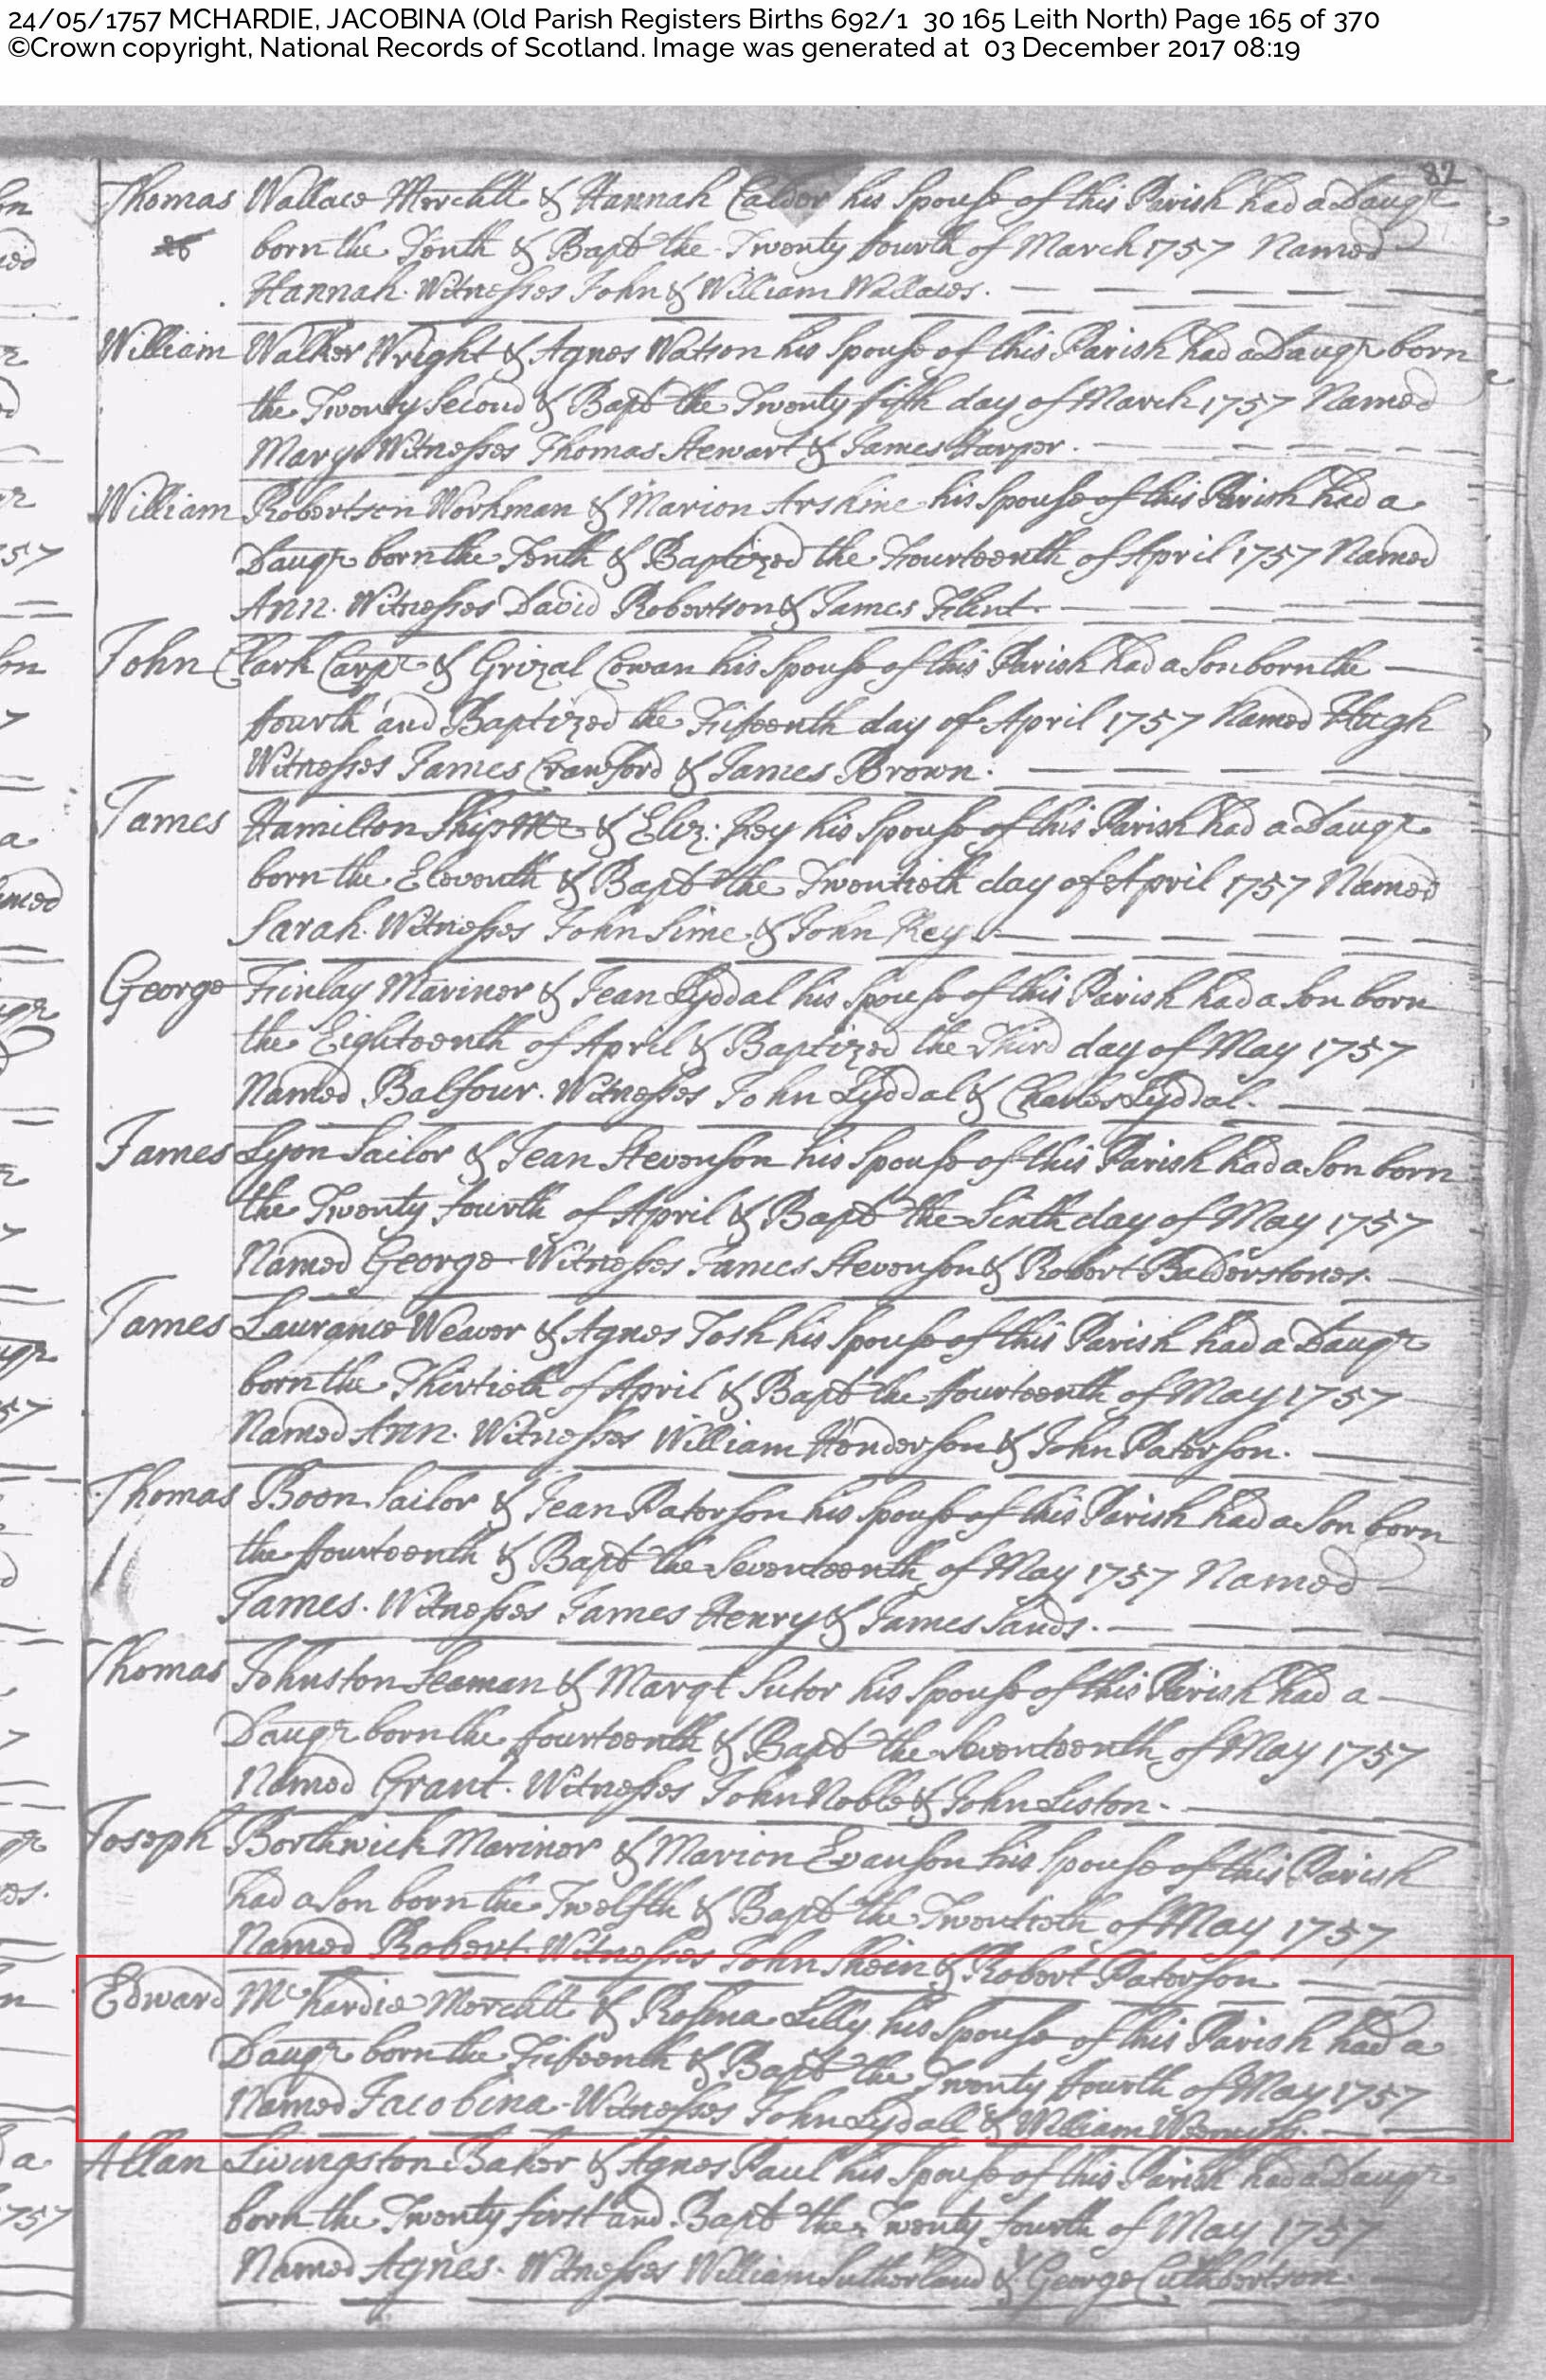 24/05/1757 MCHARDIE, JACOBINA (Old Parish Registers Births 692/1 30 165 Leith North) Page 165 of 370
©Crown copyright, National Records of Scotland. Image was generated at 03 December 2017 08:19
82
Thomas Wallace Mercht & Hannah Calder his Spouse of this Parish had a Daugr
born the Tenth & Bapd the Twenty fourth of March 1757 Named
Hannah. Witnesses John & William Wallaces.
William Walker Wright & Agnes Watson his Spouse of this Parish had a Daugr born
the Twenty Second & Bapd the Twenty fifth day of March 1757 Named
Mary Witnesses Thomas Stewart & James Harper.
William Robertson Workman & Marion Arskine his Spouse of this Parish had a
Daugr born the Tenth & Baptized the Fourteenth of April 1757 Named
Ann. Witnesses David Robertson & James Flint.
John Clark Carpr & Grizal Cowan his Spouse of this Parish had a Son born the
fourth and Baptized the Fifteenth day of April 1757 Named Hugh
Witnesses James Crawford & James Brown.
James Hamilton Ship Mr & Eliz: Key his Spouse of this Parish had a Daugr
born the Eleventh & Bapd the Twentieth day of April 1757 Named
Sarah. Witnesses John Sime & John Key.
George Finlay Mariner & Jean Lyddal his Spouse of this Parish had a Son born
the Eighteenth of April & Baptized the Third day of May 1757
Named Balfour. Witnesses John Lyddal & Charles Lyddal.
James Lyon Sailor & Jean Stevenson his Spouse of this Parish had a Son born
the Twenty fourth of April & Bapd the Sixth day of May 1757
Named George Witnesses James Stevenson & Robert Balderstones.
James Laurance Weaver & Agnes Tosh his Spouse of this Parish had a Daugr
born the Thirtieth of April & Bapd the fourteenth of May 1757
Named Ann. Witnesses William Henderson & John Paterson.
Thomas Boon Sailor & Jean Paterson his Spouse of this Parish had a Son born
the fourteenth & Bapd the Seventeenth of May 1757 Named
James. Witnesses James Henry & James Sands.
Thomas Johnston Seaman & Margt Sutor his Spouse of this Parish had a
Daugr born the fourteenth & Bapd the Seventeenth of May 1757
Named Grant. Witnesses John Noble & John Liston.
Joseph Borthwick Mariner & Marion Evanson his Spouse of this Parish
had a Son born the Twelfth & Bapd the Twentieth of May 1757
Named Robert. Witnesses John Skein & Robert Paterson
Edward Mchardie Mercht & Rosina Lilly his Spouse of this Parish had a
Daugr born the Fifteenth & Bapd the Twenty fourth of May 1757
Named Jacobina. Witnesses John Lydall & William Wemyss.
Allan Livingston Baker & Agnes Paul his Spouse of this Parish had a Daugr
born the Twenty first and Bapd the Twenty fourth of May 1757
Named Agnes. Witnesses William Sutherland & George Cuthbertson.